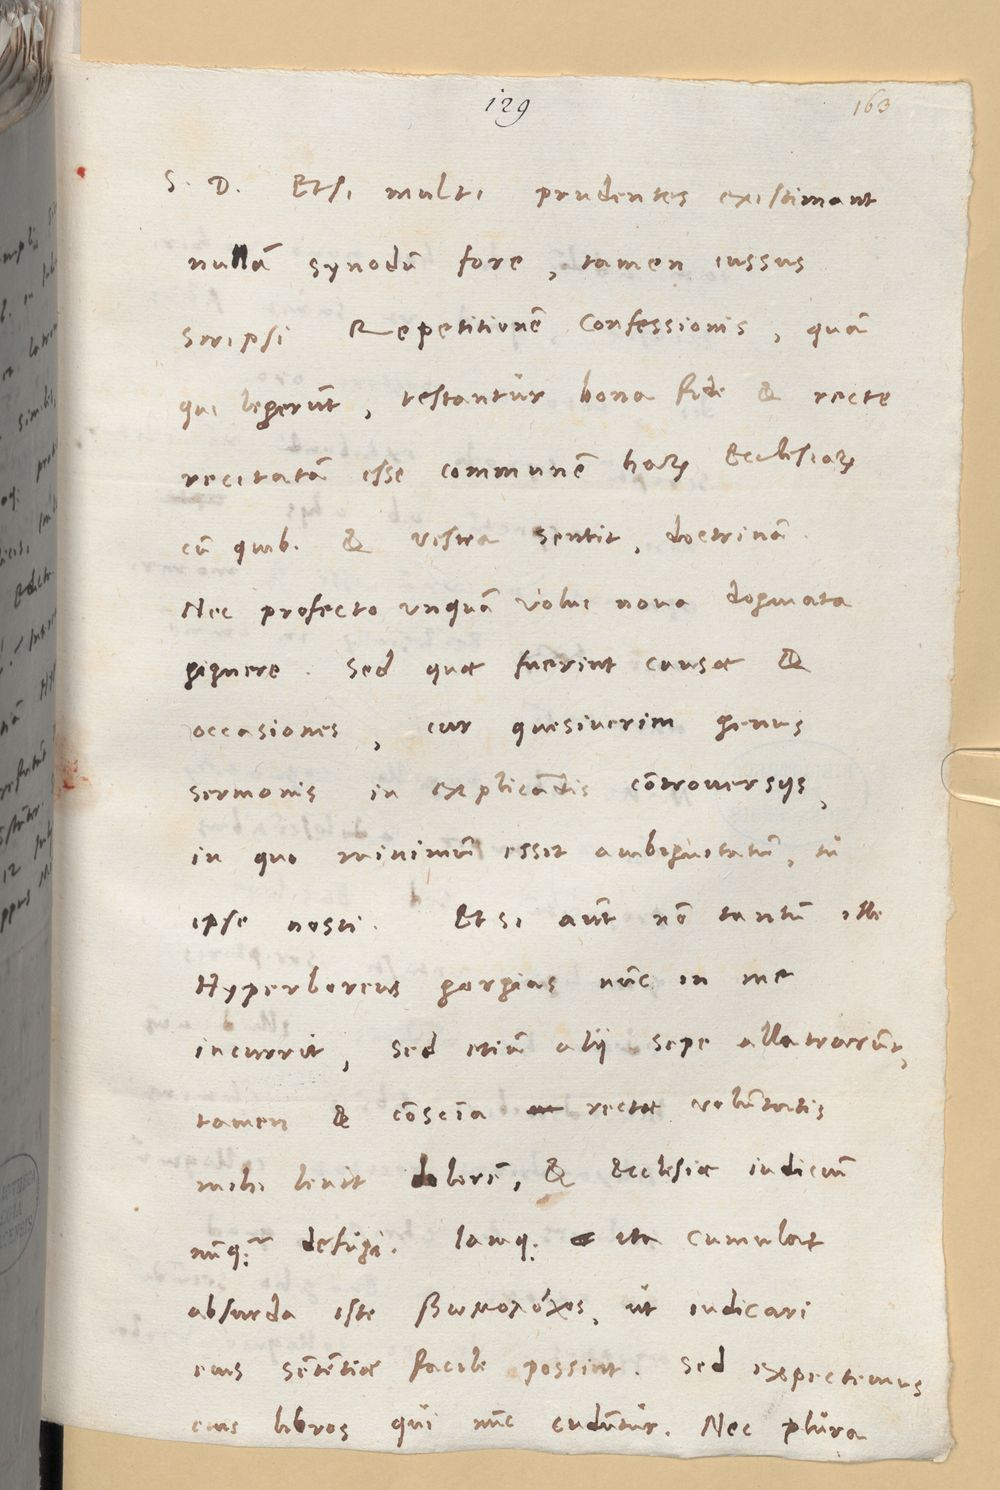 129
163
S. D. Etsi multi prudentes existimant
nullā synodū fore, tamen iussus
scripsi Repetitionē Confessionis, quā
qui legerūt, testantur bona fide & recte
recitatā esse communē harꝝ Ecclesiarꝝ
cū quib. & vestra sentit, doctrinā.
Nec profecto vnquā volui nova dogmata
gignere. Sed quæ fuerint causæ &
occasiones, cur quesiuerim genus
sermonis in explicādis cōtrouersijs,
in quo minimū esset ambiguitatū, tu
ipse nosti. Etsi aūt nō tantū ille
Hyperboreus gorgias nūc in me
incurrit, sed etiā alij sepe allatrarūt,
tamen & cōsciā rectæ volūtatis
mihi lenit dolorē, & Ecclesiæ iudiciū
nūq. defugi. Iamq. ita cumulat
absurda iste βωμολόχος, ut iudicari
eius sētētiæ facile possint. Sed expectemus
eius libros qui nūc cudūtur. Nec plura